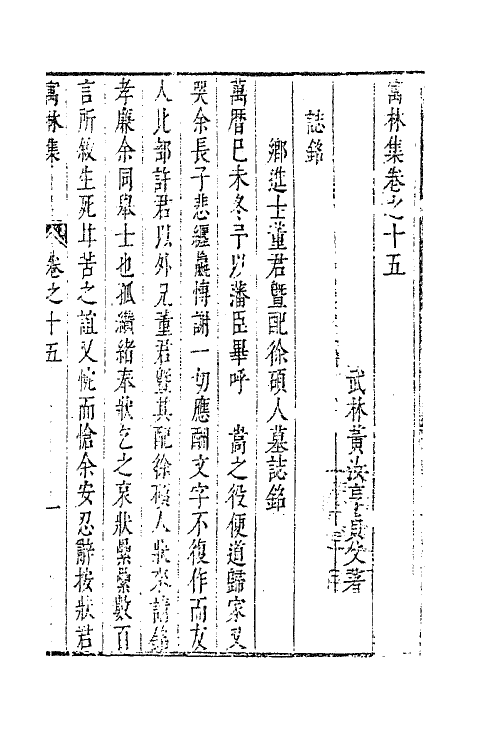 寓林集卷之十五
武林黃汝亨貞父著
誌銘
鄉進士董君曁配徐碩人墓誌銘
萬曆己未冬予以藩臣畢呼　嵩之役便道歸家又
哭余長子悲纏羸悸謝一切應酬文字不復作而友
人比部許君以外兄董君曁其配徐碩人狀來請銘
孝廉余同舉士也孤纘緒奉狀乞之哀狀纍纍數百
言所敘生死甘苦之誼又惋而愴余安忍辭按狀君
寓林集　卷之十五　一